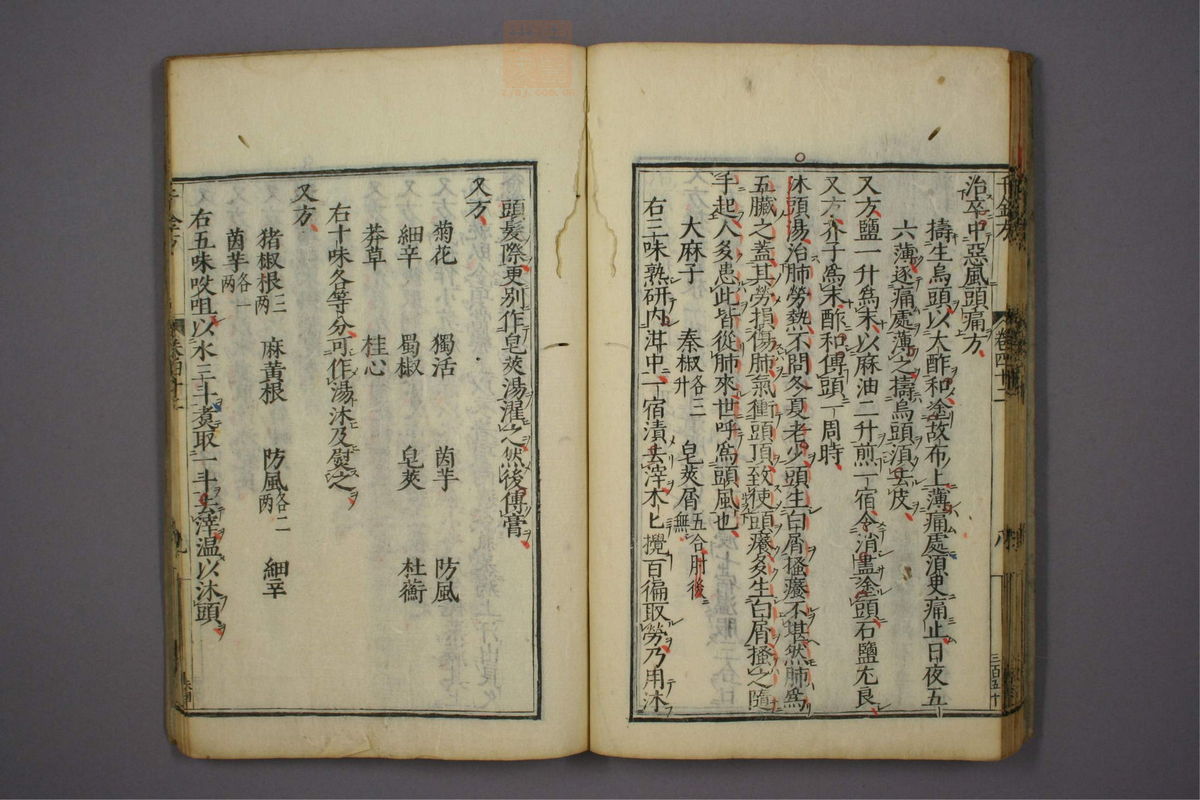 治卒中惡風頭痛方
擣生烏頭以大酢和塗故布上薄痛處須臾痛止日夜五
六薄逐痛處薄之擣烏頭須去皮
又方鹽一升爲末以麻油二升煎一宿令消盡塗頭石鹽尤良
又方芥子爲末酢和傅頭一周時
沐頭湯治肺勞熱不問冬夏老少頭生白屑搔癢不堪然肺爲
五臟之蓋其勞損傷肺氣衝頭頂致使頭癢多生白屑搔之隨
手起人多患此皆從肺來世呼爲頭風也
大麻子 秦椒各三升 皂莢屑五合肘後無
右三味熟研內泔中一宿漬去滓木匕攪百徧取勞乃用沐
頭髮際更別作皂莢湯濯之然後傅膏
又方
菊花 獨活 茵芋 防風
細辛 蜀椒 皂莢 杜蘅
莽草 桂心
右十味各等分可作湯沐及熨之
又方
猪椒根三兩 麻黃根 防風各二兩 細辛
茵芋各一兩
右五味㕮咀以水三斗煮取一斗去滓温以沐頭
千金方 卷四十二 八 三百五十